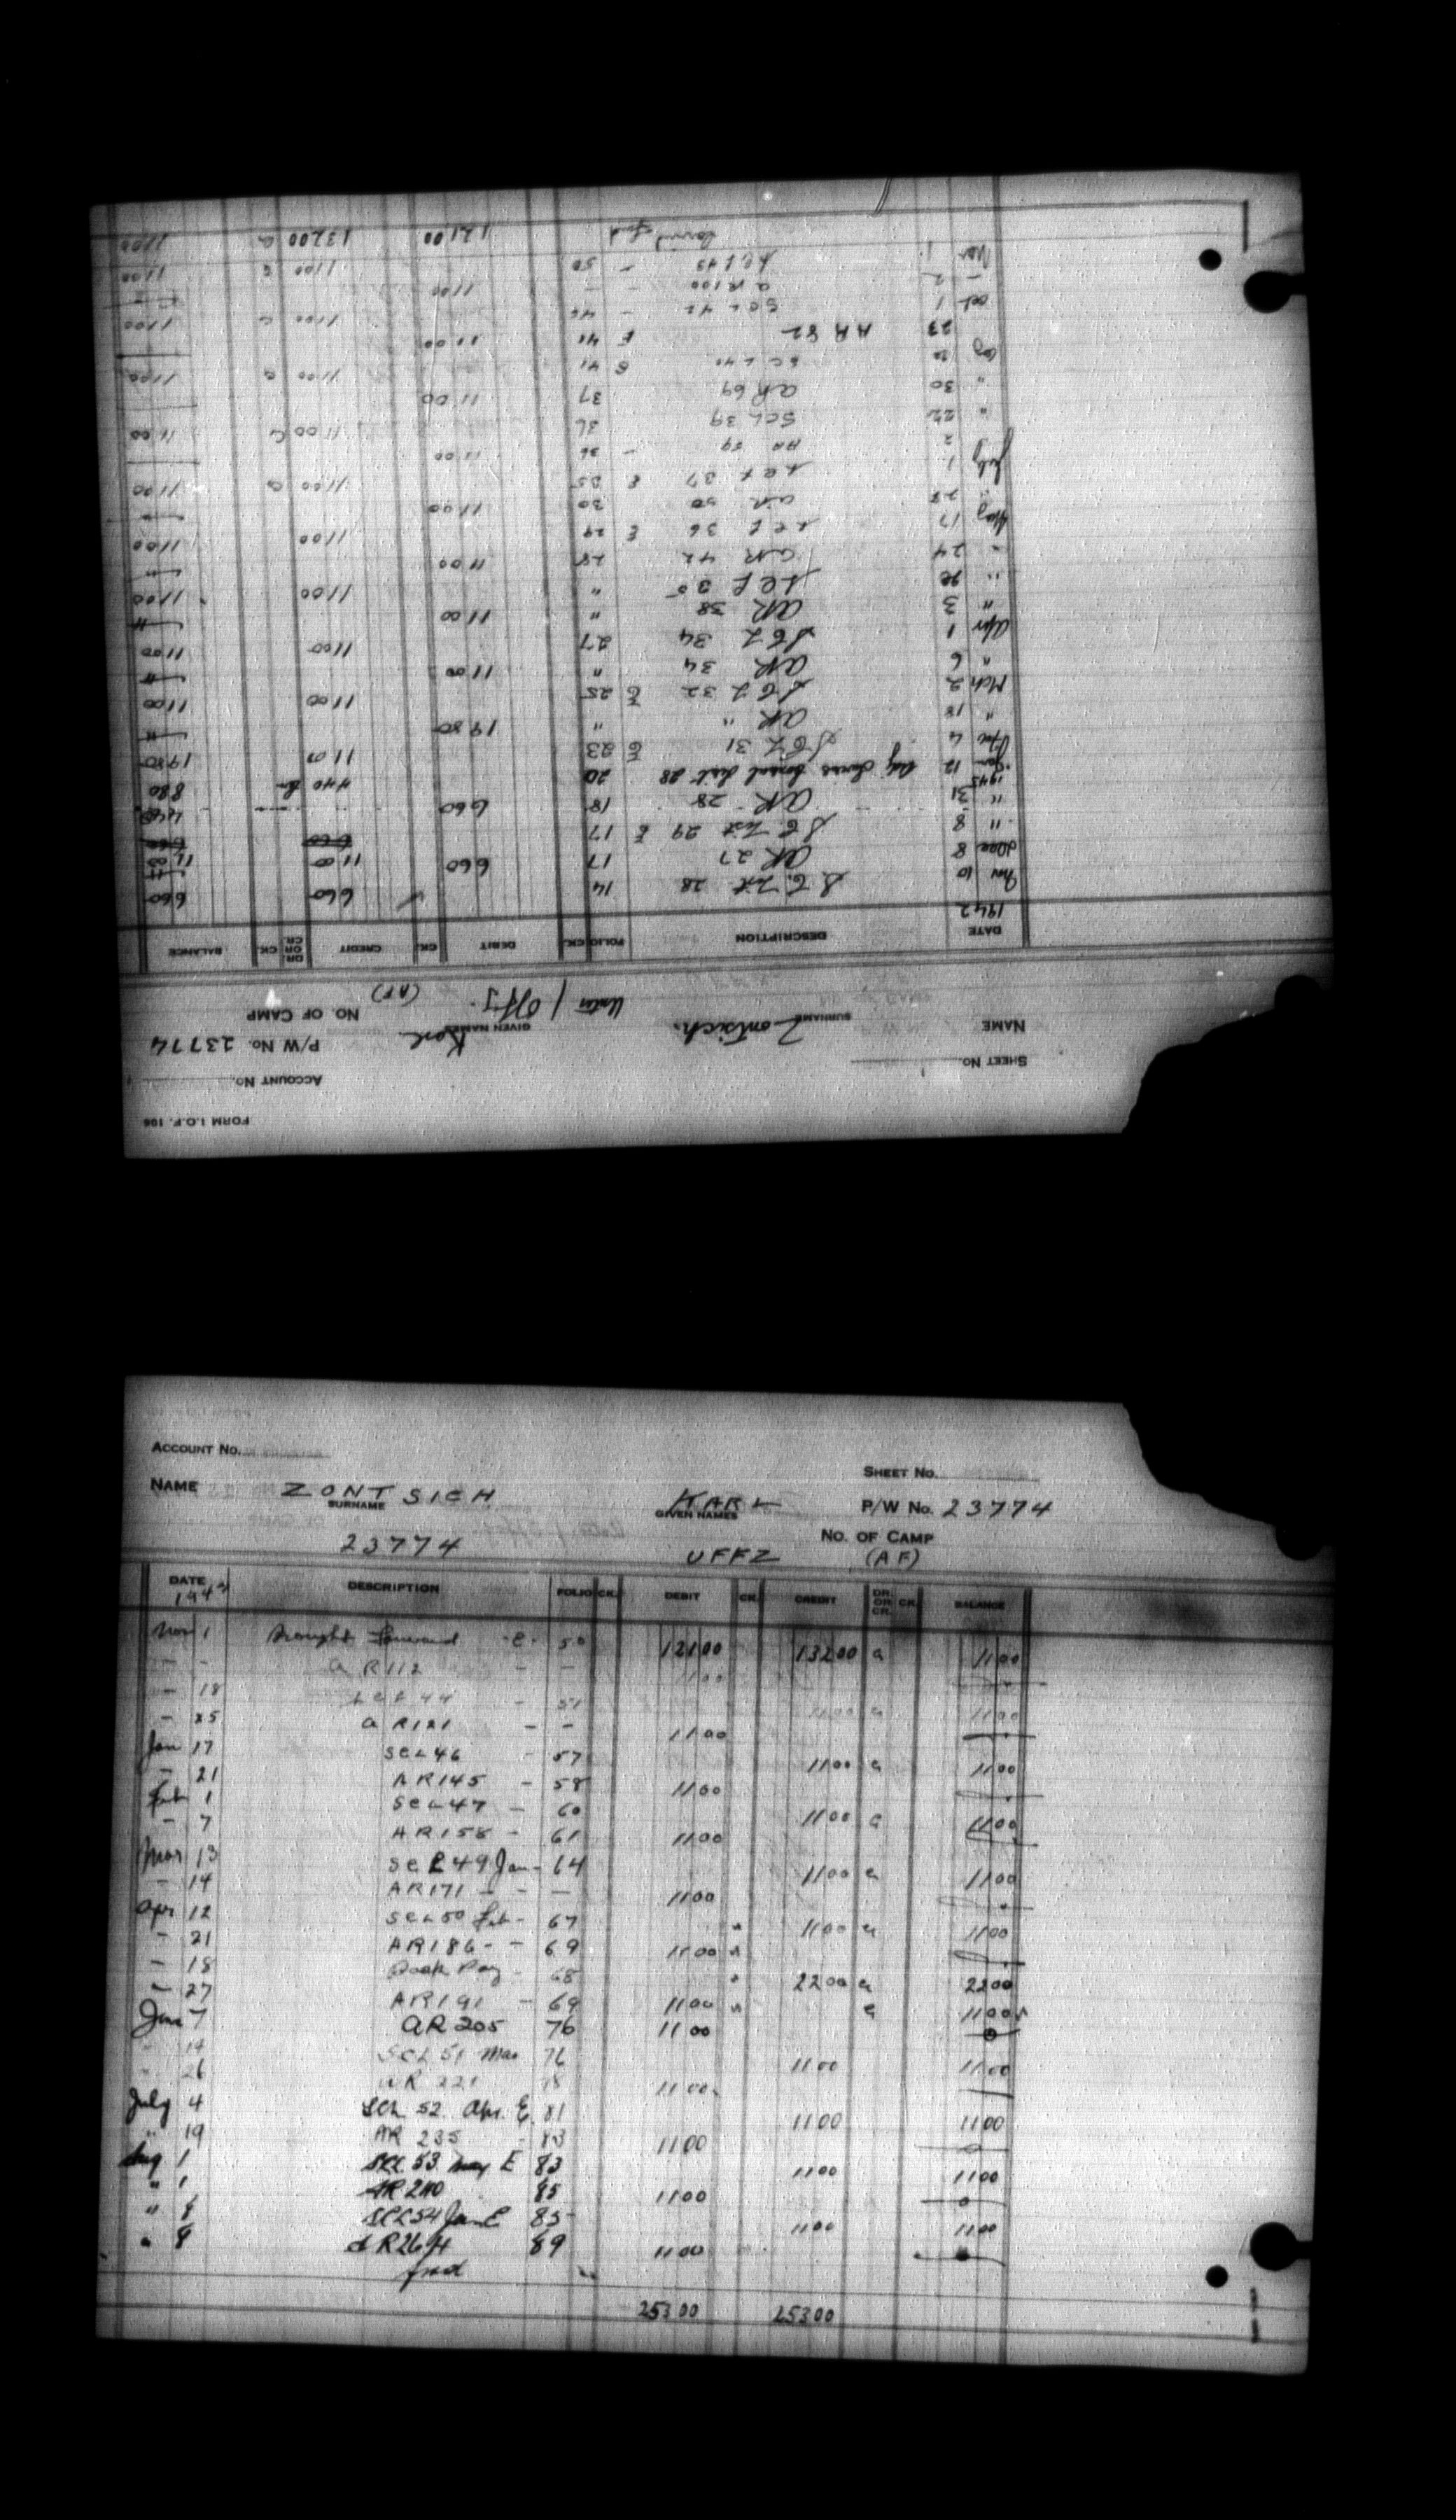 FORM I.O.F. 106
ACCOUNT No.
SHEET No.
P/W No. 23774
NAME Zontsich. Karl
SURNAME GIVEN NAMES
NO. OF CAMP (AF)
Unter / Offz.
DATE DESCRIPTION FOLIO CK. DEBIT CK. CREDIT DR. OR CR. CK. BALANCE
1942
Nov 10 S.C. List 28 14 660 660
Dec 8 AR 27 17 660
" 8 S C List 29 E 17 1100 1100
" 31 AR 28 18 660 440
1943
Jan 12 20 440 880
4 S C L 31 E 23 1100 1980
" 18 AR " " 1980
Mch 2 S C L 32 E 25 1100 1100
" 6 AR 34 " 1100
Apr 1 S C L 34 27 1100 1100
" 3 AR 38 " 1100
" 20 S C L 35 " 1100 1100
" 24 AR 42 28 1100
May 17 S C L 36 E 29 1100 1100
" 28 AR 50 30 1100
July 1 S C L 37 E 35 1100 1100
2 AR 59 - 36 1100
" 22 SCL 39 36 1100 1100
" 30 AR 69 37 1100
SCL 40 E 41 1100 1100
23 AR 82 E 41 1100
Oct 1 SCL 42 - 46 1100 1100
- 2 AR 100 - - 1100
Nov 1. SCL 43 - 50 1100 1100
12100 13200 1100
ACCOUNT No.
SHEET No.
NAME ZONTSICH KARL P/W No. 23774
SURNAME GIVEN NAMES
NO. OF CAMP
23774 UFFZ (AF)
DATE DESCRIPTION FOLIO CK. DEBIT CK. CREDIT DR. OR CR. CK. BALANCE
Nov 1 Brought Forward E 50 12100 13200 1100
- - AR112 - - 1100
- 18 SCL 44 - 51 1100 1100
- 25 AR121 - - 1100
Jan 17 SCL46 - 57 1100 1100
- 21 AR145 - 58 1100
Feb 1 SCL47 - 60 1100 1100
- 7 AR158 - 61 1100
Mar 13 SCL49 Jan - 64 1100 1100
- 14 AR171 - - - 1100
Apr 12 SCL50 Feb - 67 1100 1100
- 21 AR186 - - 69 1100
- 18 Back Pay - 68 2200 2200
- 27 AR191 - 69 1100 1100
June 7 AR 205 76 1100 0
- 14 SCL 51 Mar 76 1100 1100
- 26 AR 221 78 1100
July 4 SCL 52 Apr. E. 81 1100 1100
" 19 AR 235 - 83 1100 0
Aug 1 SCL 53 May E 83 1100 1100
" 1 AR 240 85 1100 0
" 8 SCL54 Jun E 85 1100 1100
" 8 AR264 89 1100
fwd
25300 25300